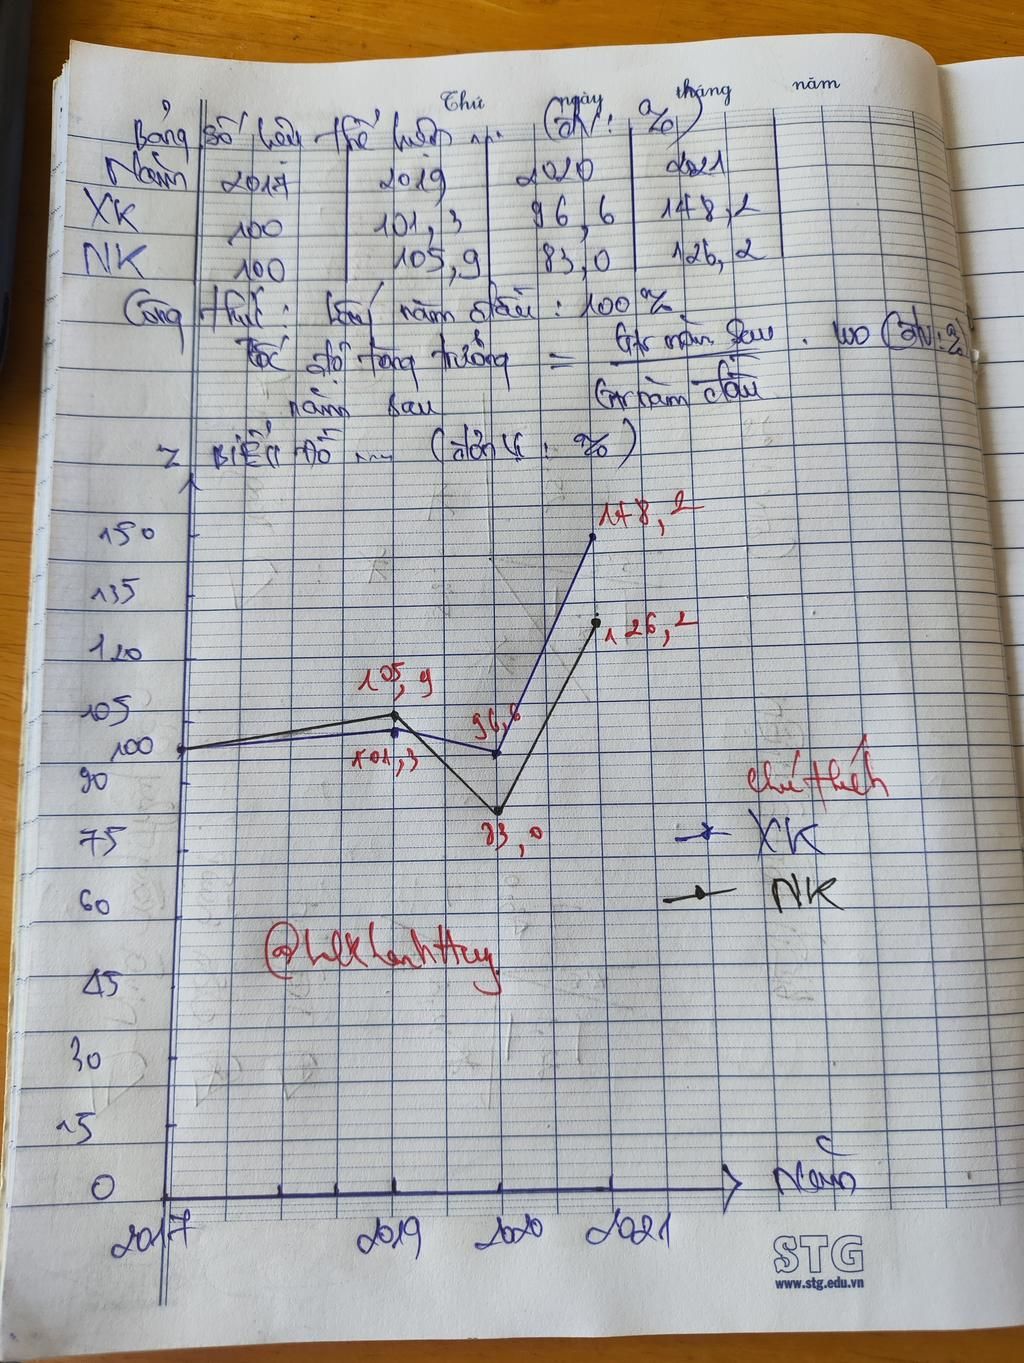 Thứ ngày tháng năm
Bảng số liệu thể hiện ... (đv: %)
Năm 2017 2019 2020 2021
XK 100 101,3 96,6 148,2
NK 100 105,9 83,0 126,2
Công thức: Lấy năm đầu: 100%
Tốc độ tăng trưởng = năm sau . 100 (đv: %)
năm sau năm đầu
2 Biểu Đồ ... (đơn vị: %)
148,2
150
135
126,2
120
105,9
105
96,6
100
101,3
90
chú thích
83,0
75
XK
60
NK
45
30
15
0
Năm
2017 2019 2020 2021
STG
www.stg.edu.vn